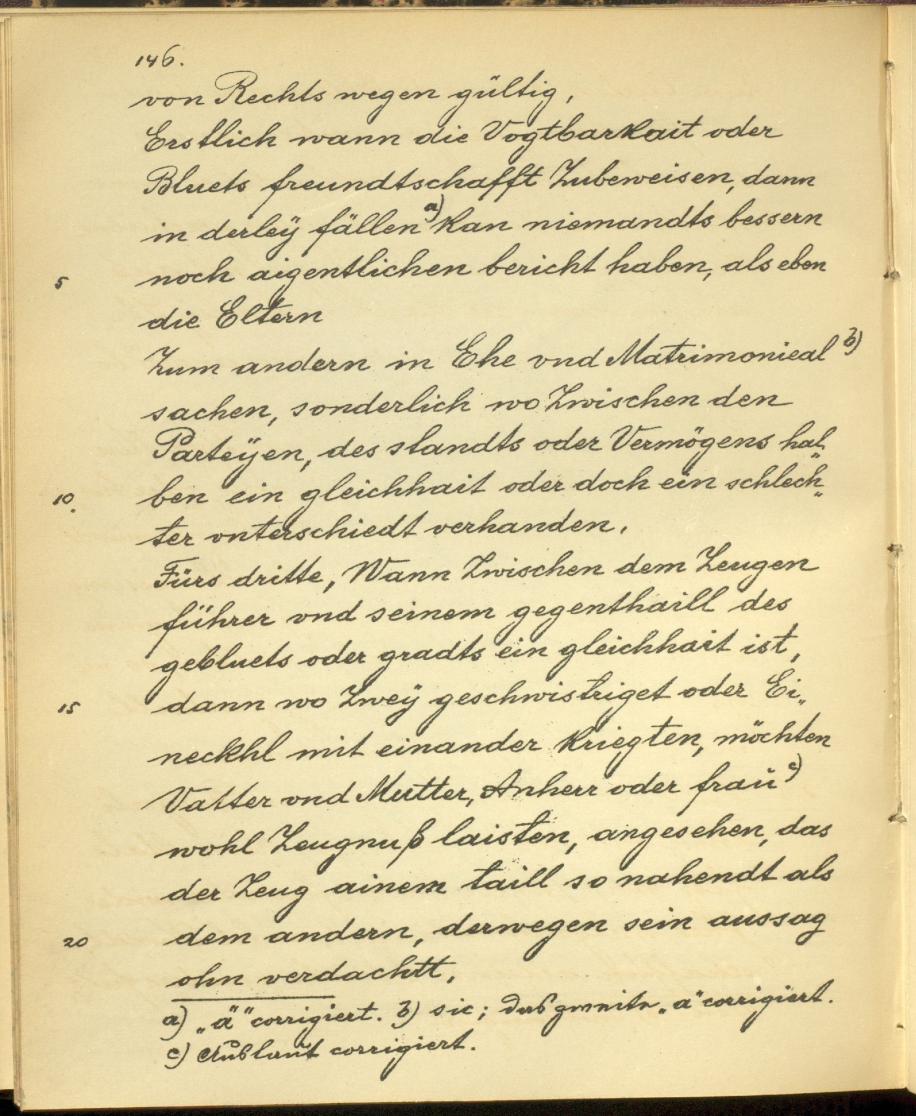 146.
von Rechts wegen gültig,
Erstlich wann die Vogtbarkait oder
Bluets freundtschafft Zubeweisen, dann
in derleÿ fällen a) kan niemandts bessern
5 noch aigentlichen bericht haben, als eben
die Eltern
Zum andern in Ehe vnd Matrimonieal b)
sachen, sonderlich wo Zwischen den
Parteÿen, des standts oder Vermögens hal„
10. ben ein gleichhait oder doch ein schlech„
ter vnterschiedt verhanden,
Fürs dritte, Wann Zwischen dem Zeugen
führer vnd seinem gegenthaill des
gebluets oder gradts ein gleichhait ist,
15 dann wo Zweÿ geschwistriget oder Ei„
neckhl mit einander kriegten, möchten
Vatter vnd Mutter, Anherr oder frau c)
wohl Zeugnuß laisten, angesehen, das
der Zeug ainem taill so nahendt als
20 dem andern, derwegen sein aussag
ohn verdachtt,
a) „ä" corrigiert. b) sic; das zweite „a" corrigiert.
c) Auslaut corrigiert.